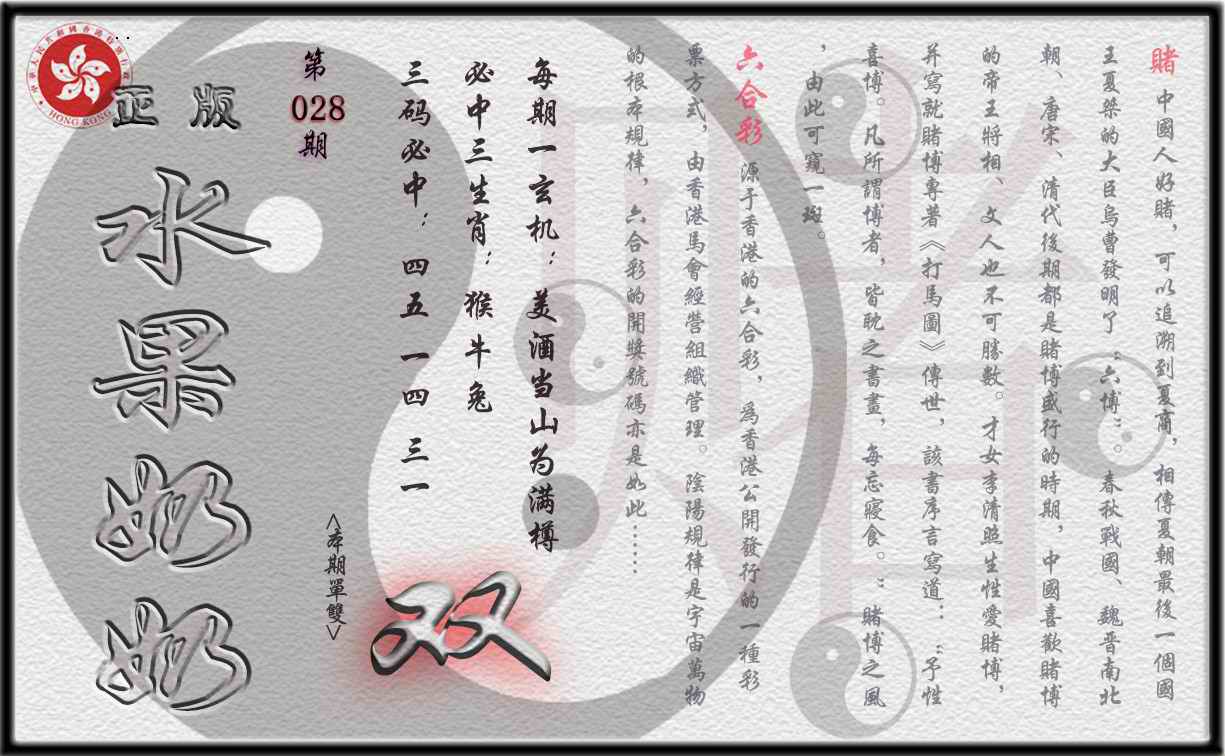 賭 中國人好賭，可以追溯到夏商，相傳夏朝最後一個國
王夏桀的大臣烏曹發明了“六博”。春秋戰國、魏晋南北
朝、唐宋、清代後期都是賭博盛行的時期，中國喜歡賭博
的帝王將相、文人也不可勝數。才女李清照生性愛賭博，
并寫就賭博專著《打馬圖》傳世，該書序言寫道：“予性
喜博。凡所謂博者，皆耽之晝晝，每忘寢食。”賭博之風
，由此可窺一斑。
六合彩 源于香港的六合彩，爲香港公開發行的一種彩
票方式，由香港馬會經營組織管理。陰陽規律是宇宙萬物
的根本規律，六合彩的開獎號碼亦是如此……
每期一玄机：美酒当山为满樽
必中三生肖：猴牛兔
三码必中：四五 一四 三一
第
028
期
<本期單雙>
双
正版
水果奶奶
HONG KONG